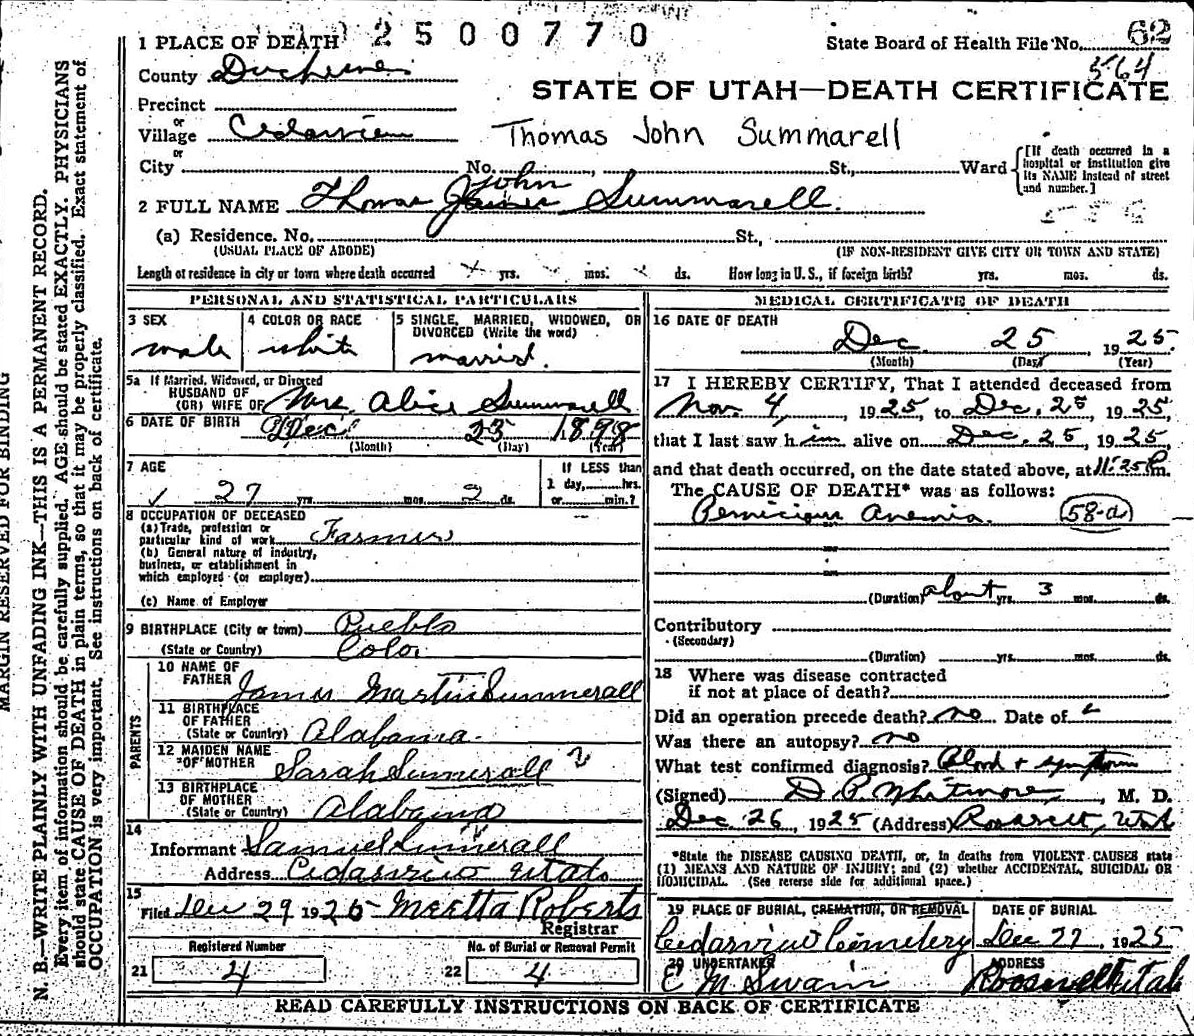 2500770
1 PLACE OF DEATH
State Board of Health File No. 62
564
County Duchesne
STATE OF UTAH—DEATH CERTIFICATE
Precinct
or
Village Cedarview
Thomas John Summarell
or
City No. St., Ward
[If death occurred in a hospital or institution give its NAME instead of street and number.]
John
2 FULL NAME Thomas James Summarell.
(a) Residence. No. St.,
(USUAL PLACE OF ABODE) (IF NON-RESIDENT GIVE CITY OR TOWN AND STATE)
Length of residence in city or town where death occurred yrs. mos. ds. How long in U. S., if foreign birth? yrs. mos. ds.
PERSONAL AND STATISTICAL PARTICULARS
3 SEX
male
4 COLOR OR RACE
white
5 SINGLE, MARRIED, WIDOWED, OR
DIVORCED (Write the word)
married.
5a If Married, Widowed, or Divorced
HUSBAND OF
(OR) WIFE OF Mrs. Alice Summarell
6 DATE OF BIRTH Dec 23 1898
(Month) (Day) (Year)
7 AGE
27 yrs. mos. 2 ds.
If LESS than
1 day, hrs.
or min.?
8 OCCUPATION OF DECEASED
(a) Trade, profession or
particular kind of work Farmer
(b) General nature of industry,
business, or establishment in
which employed (or employer)
(c) Name of Employer
9 BIRTHPLACE (City or town) Pueblo
(State or Country) Color
PARENTS
10 NAME OF
FATHER James Martin Summerall
11 BIRTHPLACE
OF FATHER
(State or Country) Alabama.
12 MAIDEN NAME
OF MOTHER Sarah Sumerall ?
13 BIRTHPLACE
OF MOTHER
(State or Country) Alabama
14
Informant Samuel Sumerall
Address Cedarview Utah
15
Filed Dec 29 1925 Meetta Roberts
Registrar
Registered Number
21 4
No. of Burial or Removal Permit
22 4
MEDICAL CERTIFICATE OF DEATH
16 DATE OF DEATH
Dec 25, 1925.
(Month) (Day) (Year)
17 I HEREBY CERTIFY, That I attended deceased from
Nov. 4, 1925, to Dec. 25, 1925,
that I last saw him alive on Dec. 25, 1925,
and that death occurred, on the date stated above, at 11:25 P.m.
The CAUSE OF DEATH* was as follows:
Pernicious Anemia. 58-a
(Duration) about yrs. 3 mos. ds.
Contributory
(Secondary)
(Duration) yrs. mos. ds.
18 Where was disease contracted
if not at place of death?
Did an operation precede death? no Date of
Was there an autopsy? no
What test confirmed diagnosis? Blood + symptoms
(Signed) D. P. Whitmore, M. D.
Dec. 26, 1925 (Address) Roosevelt, Utah
*State the DISEASE CAUSING DEATH, or, in deaths from VIOLENT CAUSES state
(1) MEANS AND NATURE OF INJURY; and (2) whether ACCIDENTAL, SUICIDAL OR
HOMICIDAL. (See reverse side for additional space.)
19 PLACE OF BURIAL, CREMATION, OR REMOVAL
Cedarview Cemetery
DATE OF BURIAL
Dec 27, 1925
20 UNDERTAKER
E M Swain
ADDRESS
Roosevelt Utah
READ CAREFULLY INSTRUCTIONS ON BACK OF CERTIFICATE
MARGIN RESERVED FOR BINDING
N. B.—WRITE PLAINLY WITH UNFADING INK—THIS IS A PERMANENT RECORD.
Every item of information should be carefully supplied. AGE should be stated EXACTLY. PHYSICIANS
should state CAUSE OF DEATH in plain terms, so that it may be properly classified. Exact statement of
OCCUPATION is very important. See instructions on back of certificate.